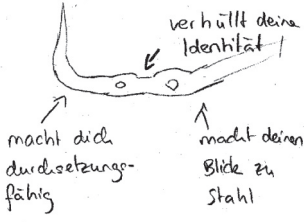 verhüllt deine
Identität
macht dich
durchsetzungs-
fähig
macht deinen
Blick zu
Stahl